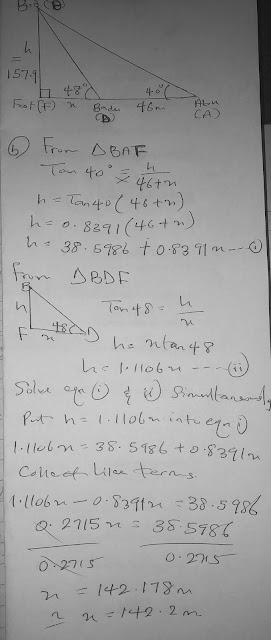 h
=
157.9
48°
40°
Foot (F) x Badu 46m Abu
(D) (A)
(b) From △BAF
Tan 40° = h / 46+x
h = Tan 40 (46+x)
h = 0.8391 (46+x)
h = 38.5986 + 0.8391x --- (i)
From △BDF
B
h
F x 48 D
Tan 48 = h / x
h = x tan 48
h = 1.1106x ---- (ii)
Solve eqn (i) & (ii) Simultaneously
Put h = 1.1106x into eqn (i)
1.1106x = 38.5986 + 0.8391x
Collect like terms
1.1106x - 0.8391x = 38.5986
0.2715x = 38.5986
0.2715 0.2715
x = 142.178m
≈ x = 142.2m